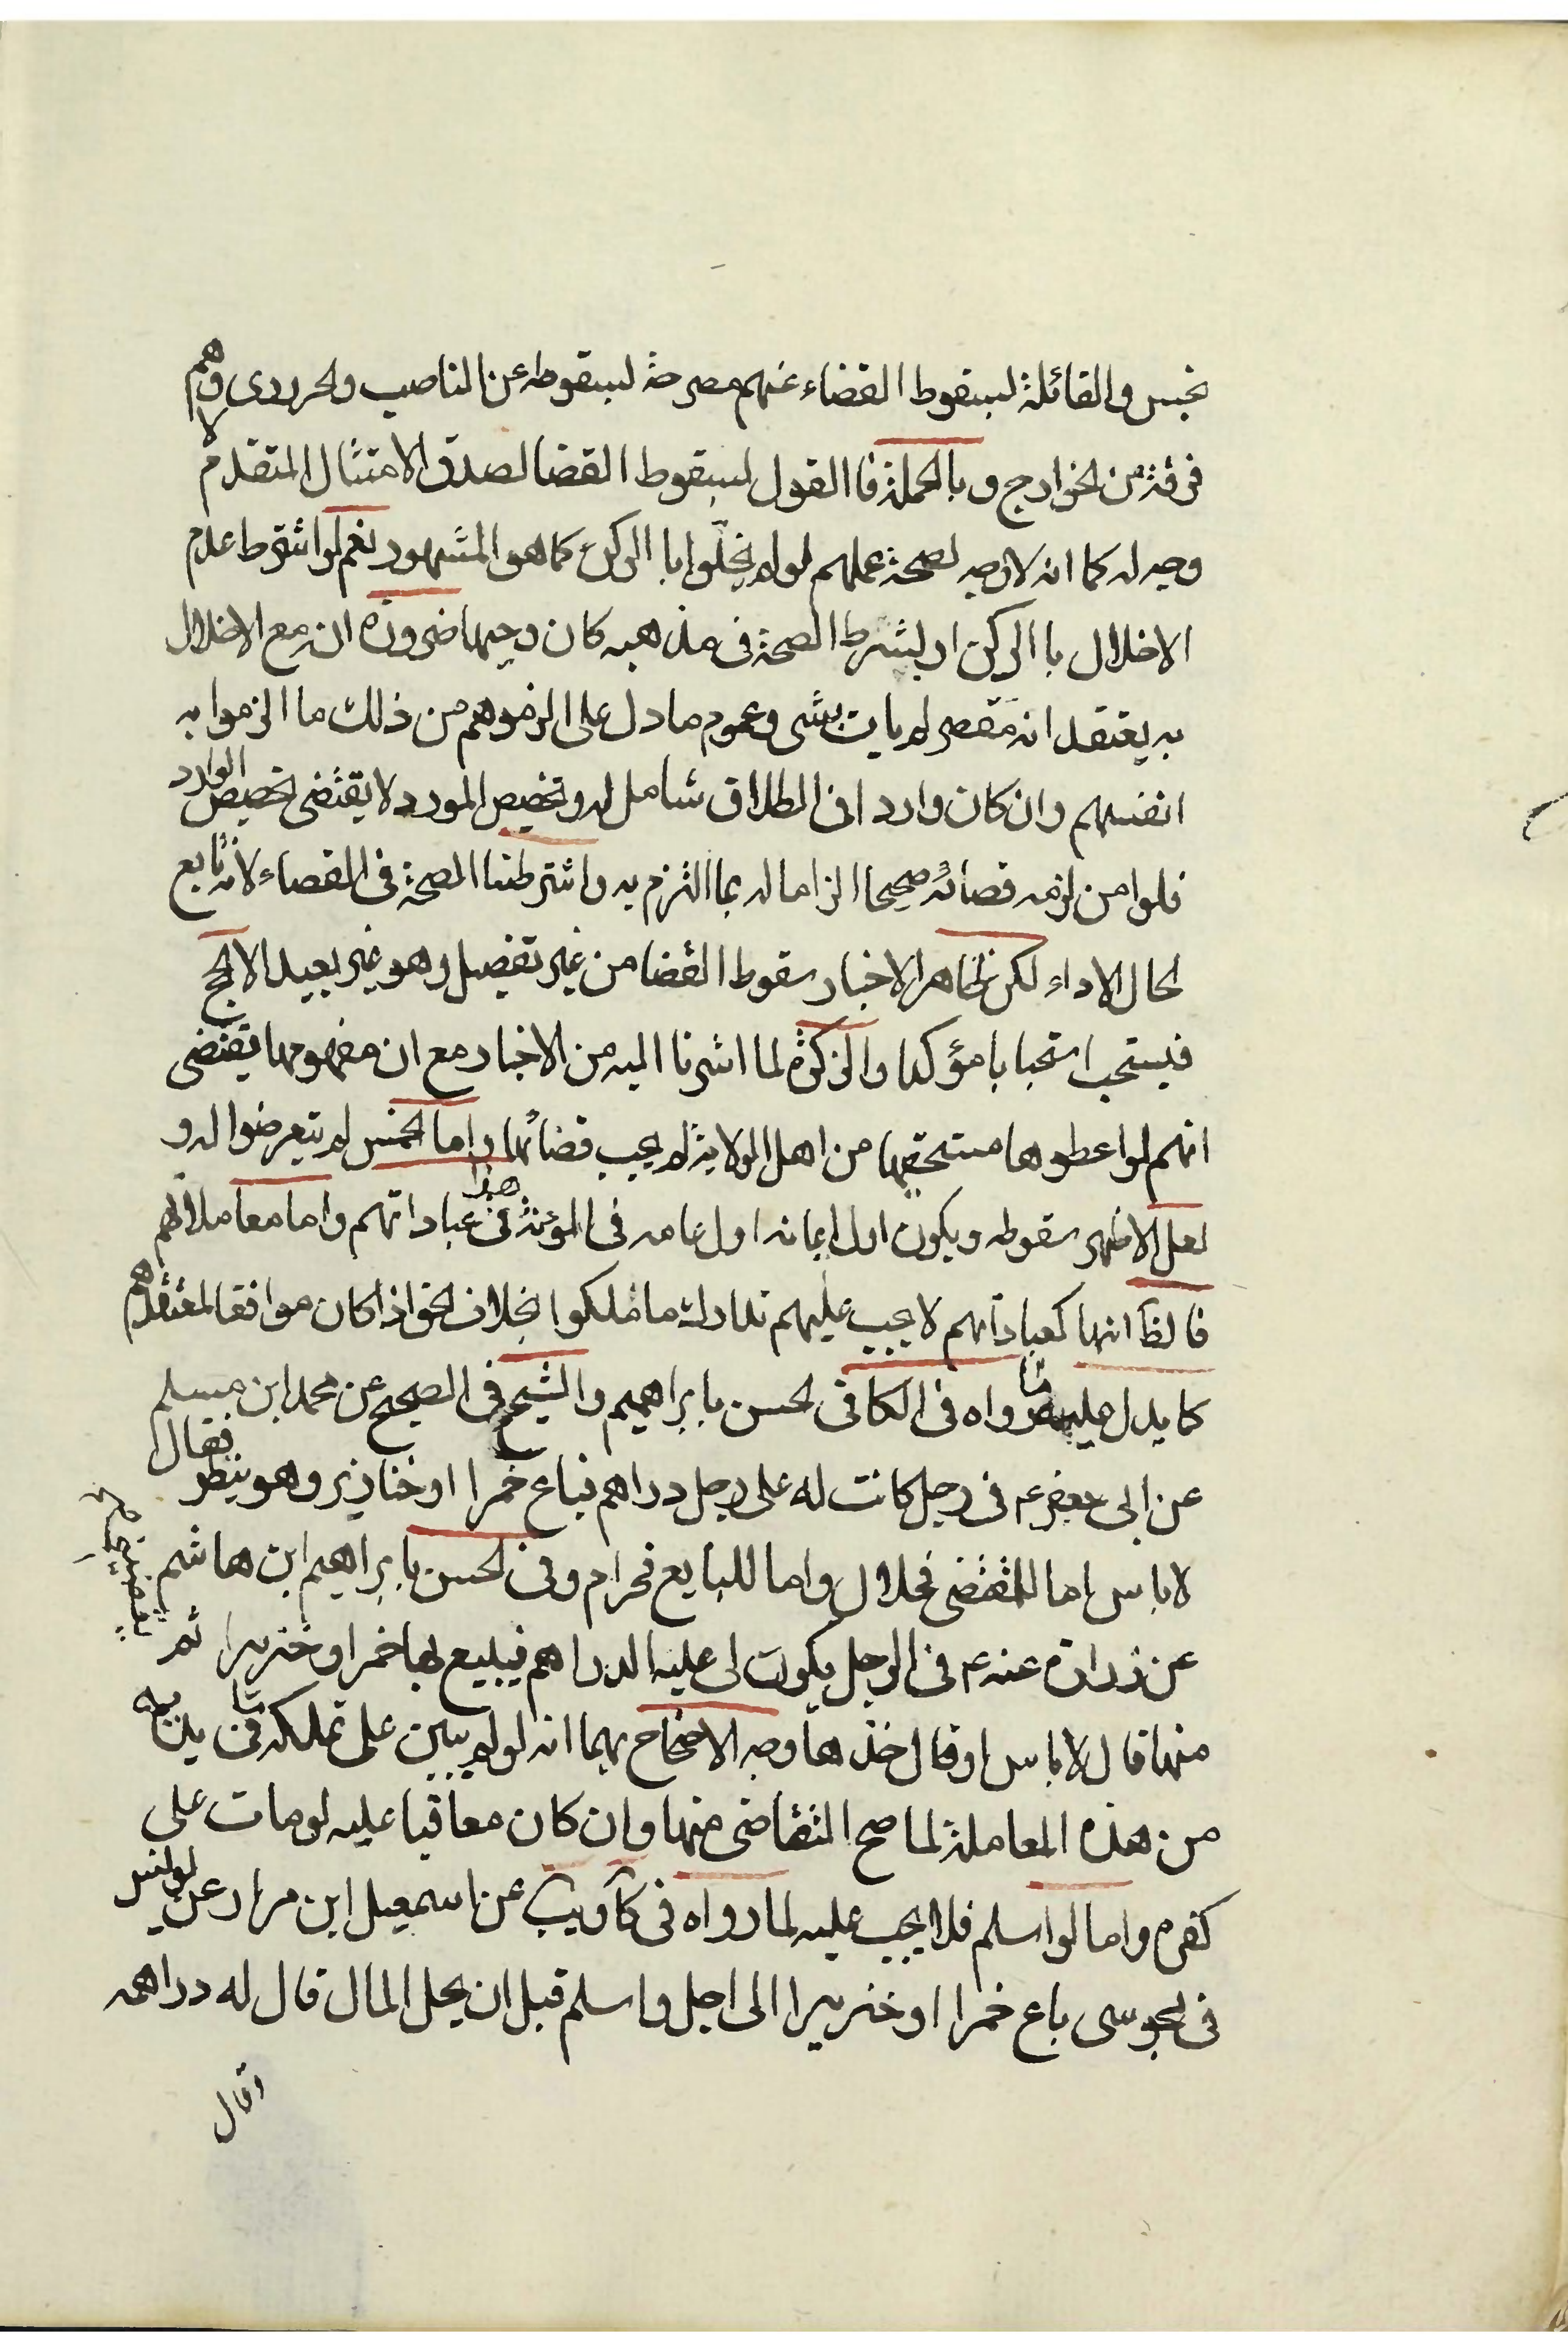 نجس والقائلة لسقوط القضاء عنهم مصرحة لسقوطه عن الناصب والحروری وهم
فرقة من الخوارج وبالجملة فاالقول لسقوط القضا لصدق الامتثال المتقدم لا
وجه له كما انه لا وجه لصحة عملهم لو لم يخلّوا باالركن كما هو المشهور نعم لو اشترط عدم
الاخلال باالركن او بشرط الصحة فی مذهبه كان وجيها ضرورة ان مع الاخلال
به يعتقد انه مقصر لم يات بشی وعموم ما دل على الزموهم من ذلك ما الزموا به
انفسهم وان كان واردا فی الطلاق شامل له وتخصيص المورد لا يقتضی تخصيص الوارد
فلو امن لزمه قضائه صحيحا الزاما له بما التزم به واشترطنا الصحة فی القضاء لانه تابع
لحال الاداء لكن ظاهر الاخبار سقوط القضا من غير تفصيل وهو غير بعيد الا الحج
فيستحب استحبابا مؤكدا والزكوة لما اشرنا اليه من الاخبار مع ان مفهومها يقتضی
انهم لو اعطوها مستحقها من اهل الولاية لم يجب قضائها واما الخمس لم يتعرضوا له و
لعل الاظهر سقوطه ويكون اول ايمانه اول عامه فی المؤنة هذا فی عباداتهم واما معاملاتهم
فالظ انها كعباداتهم لا يجب عليهم تدارك ما ملكوا بخلاف الحق اذا كان موافقا لمعتقدهم
كما يدل عليه ما رواه فی الكافی لحسن بابراهيم والشيخ فی الصحيح عن محمد ابن مسلم
عن ابی جعفر ع فی رجل كانت له على رجل دراهم فباع خمرا او خنازير وهو ينظر فقال
لا باس اما للمقتضی فحلال واما للبايع فحرام وفی الحسن بابراهيم ابن هاشم
عن زرارة عنه ع فی الرجل يكون لی عليه الدراهم فيبيع بها خمرا وخنزيرا ثم
منها قال لا باس او قال خذها وجه الاحتجاج بهما انه لو لم يبين على تملكه ما فی يديه
من هذه المعاملة لما صح التقاضی منها وان كان معاقبا عليه لو مات على
كفره واما لو اسلم فلا يجب عليه لما رواه فی كا ويب عن اسمعيل ابن مرار عن يونس
فی مجوسی باع خمرا او خنزيرا الى اجل واسلم قبل ان يحل المال قال له دراهمه
وقال